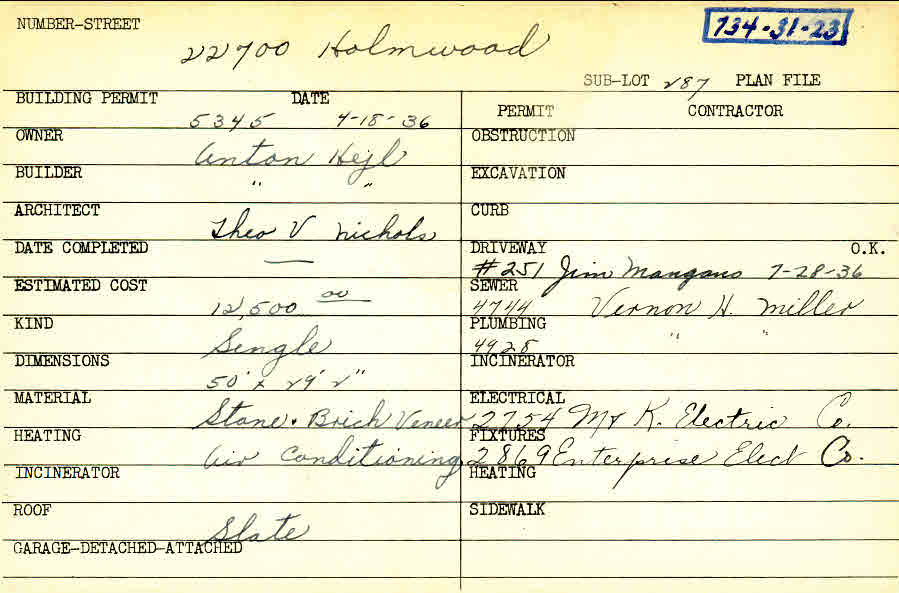 NUMBER-STREET
22700 Holmwood
734-31-23
SUB-LOT 287 PLAN FILE
BUILDING PERMIT DATE
5345 4-18-36
OWNER
Anton Hejl
BUILDER
" "
ARCHITECT
Theo V Nichols
DATE COMPLETED
—
ESTIMATED COST
12,500 00
KIND
Single
DIMENSIONS
50' x 29' 2"
MATERIAL
Stone & Brick Veneer
HEATING
Air Conditioning
INCINERATOR
ROOF
Slate
GARAGE-DETACHED-ATTACHED
PERMIT CONTRACTOR
OBSTRUCTION
EXCAVATION
CURB
DRIVEWAY O.K.
#251 Jim Mangano 7-28-36
SEWER
4744 Vernon H. Miller
PLUMBING
4928 " "
INCINERATOR
ELECTRICAL
2754 M & K. Electric Co.
FIXTURES
2869 Enterprise Elect Co.
HEATING
SIDEWALK